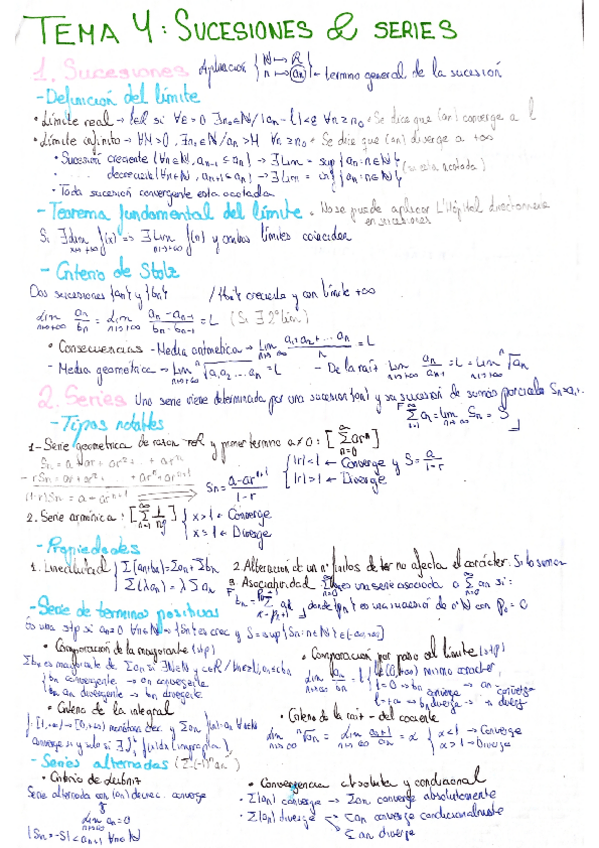 TEMA 4: SUCESIONES & SERIES
1. Sucesiones Aplicación { N → R
n → an } ← termino general de la sucesión
- Definición del límite
• Límite real → l∈R si ∀ε>0 ∃n₀∈N / |an - l|<ε ∀n≥n₀ • Se dice que (an) converge a l
• Límite infinito → ∀M>0, ∃n₀∈N / an>M ∀n≥n₀ • Se dice que (an) diverge a +∞
• Sucesión creciente (∀n∈N, an-1 ≤ an) → ∃Lim = sup{an: n∈N} (si esta acotada)
decreciente (∀n∈N, an+1 ≤ an) → ∃Lim = inf{an: n∈N}
• Toda sucesión convergente esta acotada
- Teorema fundamental del límite • No se puede aplicar L'Hôpital directamente
en sucesiones
Si ∃ lim x→+∞ f(x) => ∃ Lim n→+∞ f(n) y ambos límites coinciden
- Criterio de Stolz
Dos sucesiones {an} y {bn} / {bn} creciente y con límite +∞
lim n→+∞ an/bn = lim n→+∞ (an - an-1)/(bn - bn-1) = L (Si ∃ 2º lim)
• Consecuencias - Media aritmetica → Lim n→+∞ (a₁+a₂+...an)/n = L
- Media geométrica → Lim n→+∞ ⁿ√(a₁a₂...an) = L - De la raiz Lim n→+∞ an/an-1 = L = Lim ⁿ√an
2. Series Una serie viene determinada por una sucesion {an} y su sucesión de sumas parciales
Σan = lim n→∞ Sn = S
- Tipos notables
1- Serie geometrica de razon r∈R y primer termino a≠0: [Σ n=0 ∞ arⁿ]
Sn = a + ar + ar² + ... + arⁿ
- rSn = ar + ar² + ... + arⁿ + arⁿ⁺¹
(1-r)Sn = a - arⁿ⁺¹
Sn = (a - arⁿ⁺¹)/(1-r)
|r|<1 ← Converge y S = a/(1-r)
|r|>1 ← Diverge
2. Serie armónica: { x>1 ← Converge
x≤1 ← Diverge
- Propiedades
1. Linealidad { Σ(an+bn) = Σan + Σbn
Σ(λan) = λ Σan
2 Alteración de un nº finitos de ter no afecta el carácter. Si la suma
3. Asociatividad Σbn es una serie asociada a Σan si:
donde pn es una sucesión de nºN con p₀ = 0
- Serie de terminos positivos
Es una stp si an≥0 ∀n∈N → {Sn} es crec y S = sup{Sn: n∈N}
• Comparación de la mayorante (stp)
Σbn es mayorante de Σan si
{ bn convergente → an convergente
an divergente → bn divergente
• Comparación por paso al límite (stp)
lim n→+∞ an/bn = l mismo caracter
l=0 → bn converge → an converge
l=+∞ → bn diverge → an diverg
• Criterio de la integral
f: [1,+∞) → [0,+∞) monótona dec. y
converge si y solo si
• Criterio de la raiz - del cociente
lim n→∞ ⁿ√an = lim n→∞ an+1/an = x { x<1 → Converge
x>1 → Diverge
- Series alternadas (Σ(-1)ⁿan)
• Criterio de Leibniz
Serie alternada con (an) decrec. converge
⇕
lim n→∞ an = 0
|Sn - S| < an+1 ∀n∈N
• Convergencia absoluta y condicional
• Σ|an| converge → Σan converge absolutamente
• Σ|an| diverge → Σan converge condicionalmente
Σan diverge